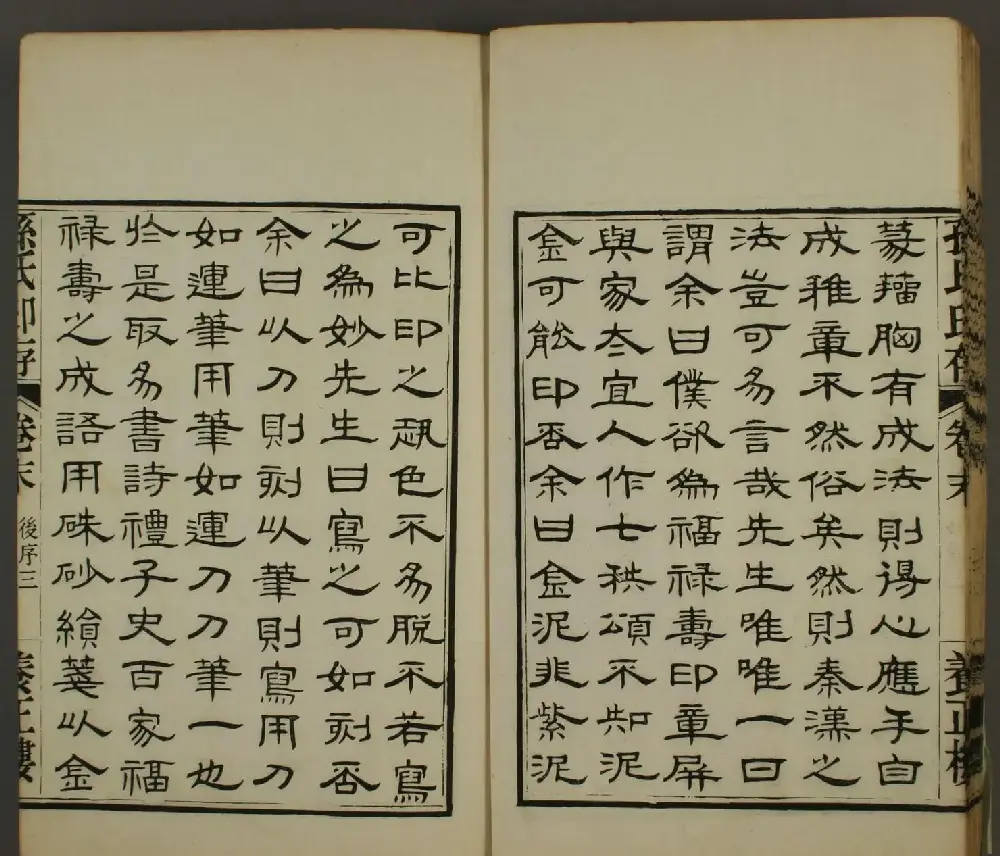 篆籀胸有成法則得心應手自
成雅章不然俗矣然則秦漢之
法豈可易言哉先生唯唯一日
謂余曰僕欲為福禄壽印章屏
與家太宜人作七秩頌不知泥
金可能印否余曰金泥非紫泥
可比印之熟色不易脫不若寫
之為妙先生曰寫之可如刻否
余曰以刀則刻以筆則寫用刀
如運筆用筆如運刀刀筆一也
於是取易書詩禮子史百家福
禄壽之成語用硃砂繪箋以金
孫氏印存
卷末
後序三
養正樓